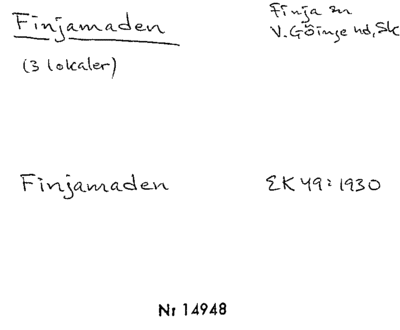 Finjamaden
Finja sn
V. Göinge hd, Sk
(3 lokaler)
Finjamaden
EK 49: 1930
Nr 14948